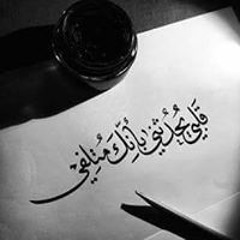 قَلبي يُحَدِّثُني بِأَنَّكَ مُتلِفي